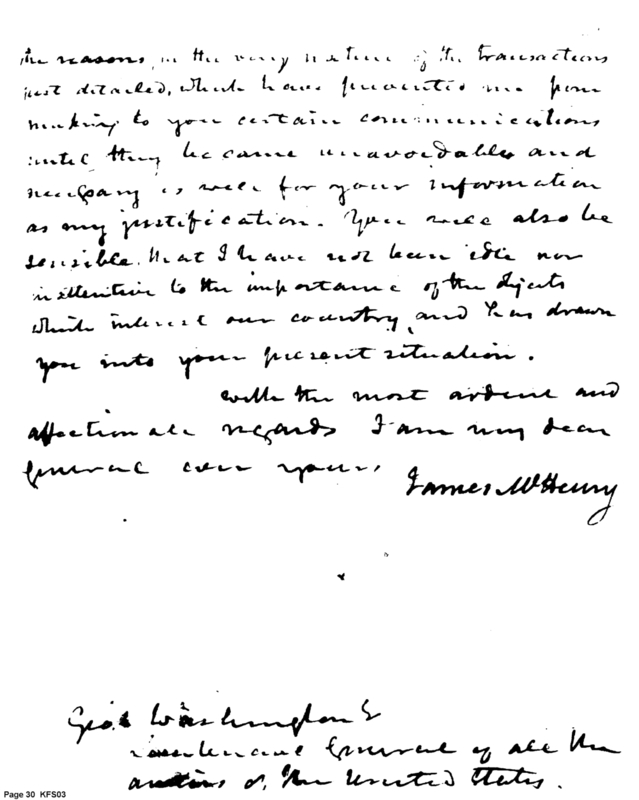 the reasons, in the very nature of the transactions
just detailed, which have prevented me from
making to you certain communications
until they became unavoidable and
necessary as well for your information
as my justification. You will also be
sensible that I have not been idle nor
inattentive to the importance of the objects
which interest our country, and has drawn
you into your present situation.
With the most ardent and
affectionate regards I am my dear
General ever yours,
James McHenry
Geo. Washington
Lieutenant General of all the
armies of the United States.
Page 30 KFS03